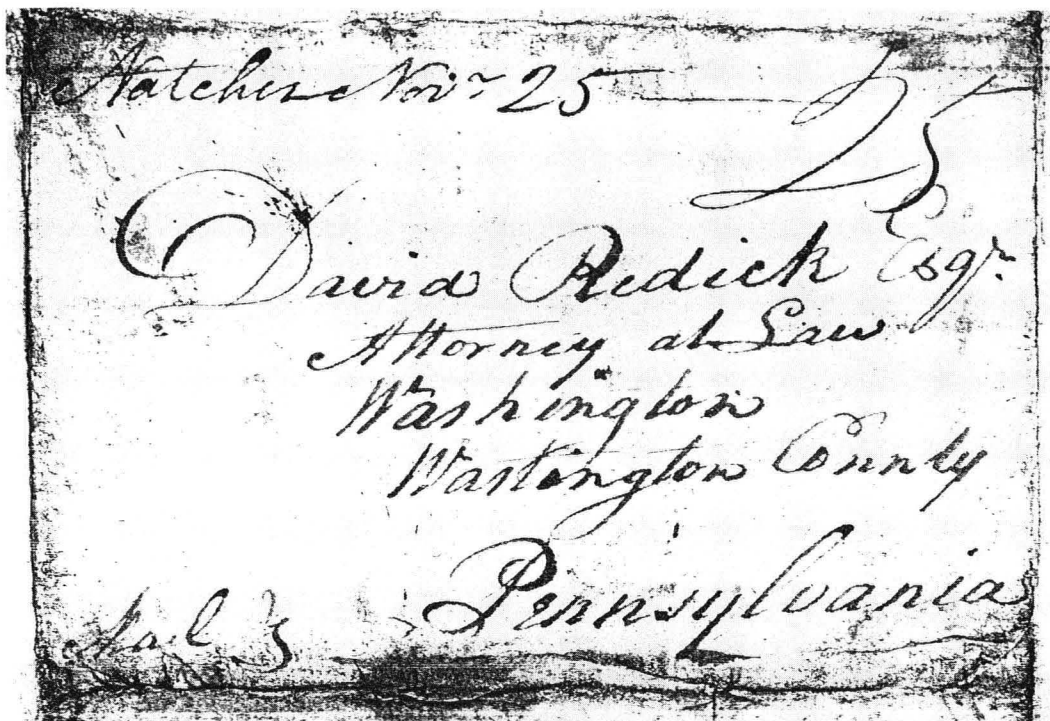 Natchez Novr 25 25
David Redick Esqr
Attorney at Law
Washington
Washington County
Pennsylvania
Mail